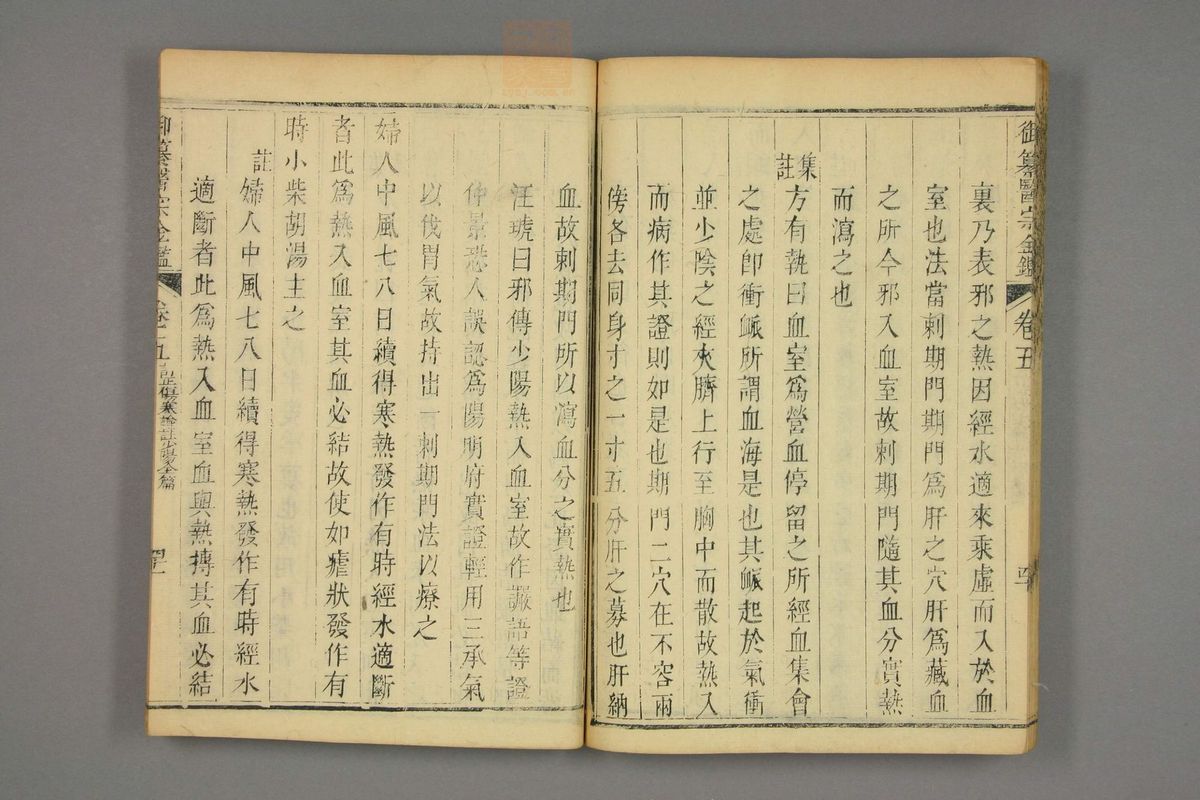 御纂醫宗金鑑 卷五
裏乃表邪之熱因經水適來乘虛而入於血
室也法當刺期門期門為肝之穴肝為藏血
之所今邪入血室故刺期門隨其血分實熱
而瀉之也
集註
方有執曰血室為營血停留之所經血集會
之處即衝脈所謂血海是也其脈起於氣衝
並少陰之經夾臍上行至胸中而散故熱入
而病作其證則如是也期門二穴在不容兩
傍各去同身寸之一寸五分肝之募也肝納
血故刺期門所以瀉血分之實熱也
汪琥曰邪傳少陽熱入血室故作讝語等證
仲景恐人誤認為陽明府實證輕用三承氣
以伐胃氣故持出一刺期門法以療之
婦人中風七八日續得寒熱發作有時經水適斷
者此為熱入血室其血必結故使如瘧狀發作有
時小柴胡湯主之
註
婦人中風七八日續得寒熱發作有時經水
適斷者此為熱入血室血與熱摶其血必結
御纂醫宗金鑑 卷五 訂正傷寒論註少陽全篇